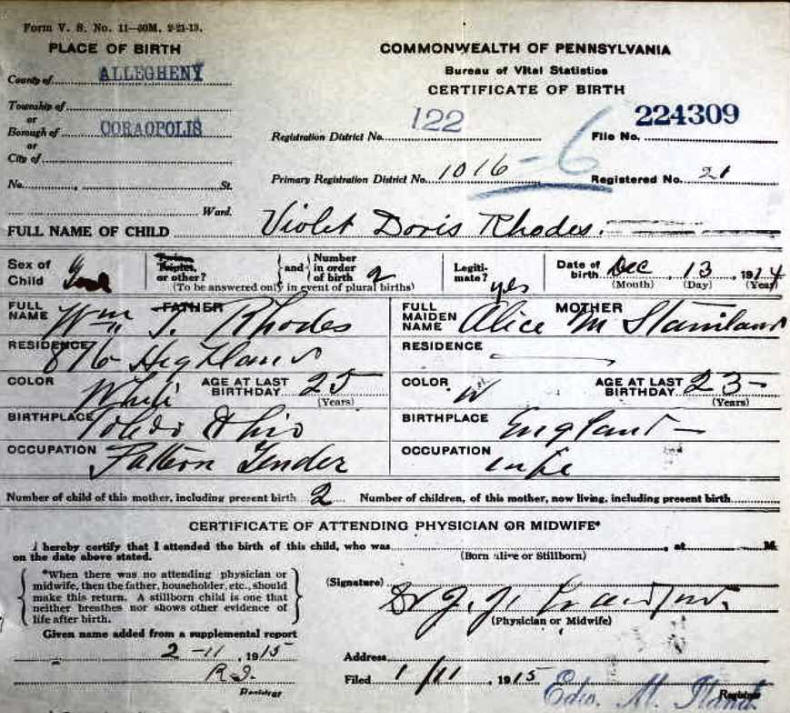 Form V. S. No. 11—50M. 2-21-13.
PLACE OF BIRTH
COMMONWEALTH OF PENNSYLVANIA
Bureau of Vital Statistics
CERTIFICATE OF BIRTH
County of ALLEGHENY
Township of
or
Borough of CORAOPOLIS
or
City of
Registration District No. 122
File No. 224309
No. , St.
Primary Registration District No. 1016 - 6
Registered No. 21
Ward.
FULL NAME OF CHILD Violet Doris Rhodes.
Sex of Child
Twins, Triplets, or other?
and Number in order of birth 2
(To be answered only in event of plural births)
Legitimate? yes
Date of birth Dec 13, 1914
(Month) (Day) (Year)
FATHER
FULL NAME Wm T. Rhodes
RESIDENCE 876 Highland
COLOR White
AGE AT LAST BIRTHDAY 25
(Years)
BIRTHPLACE Toledo Ohio
OCCUPATION Tender
MOTHER
FULL MAIDEN NAME Alice M Staniland
RESIDENCE
COLOR W
AGE AT LAST BIRTHDAY 23
(Years)
BIRTHPLACE England
OCCUPATION
Number of child of this mother, including present birth 2
Number of children, of this mother, now living, including present birth
CERTIFICATE OF ATTENDING PHYSICIAN OR MIDWIFE*
I hereby certify that I attended the birth of this child, who was , at M.
on the date above stated.
(Born alive or Stillborn)
*When there was no attending physician or
midwife, then the father, householder, etc., should
make this return. A stillborn child is one that
neither breathes nor shows other evidence of
life after birth.
(Signature) Dr J. J.
(Physician or Midwife)
Given name added from a supplemental report
2-11, 1915
Address
Registrar
Filed 1/11, 1915 Edw. M.
Registrar